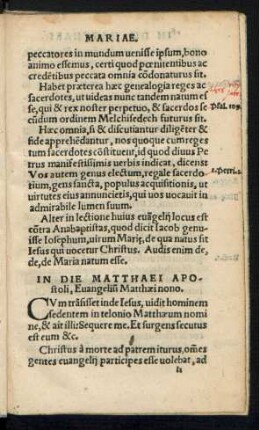 MARIAE.
peccatores in mundum uenisse ipsum, bono
animo essemus, certi quod pœnitentibus ac
credẽtibus peccata omnia cõdonaturus sit.
Habet præterea hæc genealogia reges ac
sacerdotes, ut iudeas nunc tandem natum es
se, qui & rex noster perpetuo, & sacerdos se
cũdum ordinem Melchisedech futurus sit.
Psal. 109.
Hæc omnia, si & discutiantur diligẽter &
fide apprehẽdantur, nos quoque cum reges
tum sacerdotes cõstituent, id quod diuus Pe
trus manifestissimis uerbis indicat, dicens:
Vos autem genus electum, regale sacerdo
1. Petri 2.
tium, gens sancta, populus acquisitionis, ut
uirtutes eius annuncietis, qui uos uocauit in
admirabile lumen suum.
Alter in lectione huius euãgelij locus est
cõtra Anabaptistas, quod dicit Iacob genu-
isse Iosephum, uirum Mariæ, de qua natus sit
Iesus qui uocetur Christus. Audis enim de,
de, de Maria natum esse.
IN DIE MATTHAEI APO-
stoli, Euangeliũ Matthæi nono.
CVm trãsisset inde Iesus, uidit hominem
sedentem in telonio Matthæum nomi
ne, & ait illi: Sequere me. Et surgens secutus
est eum &c.
Christus à morte ad patrem iturus, om̃es
gentes euangelij participes esse uolebat, ad